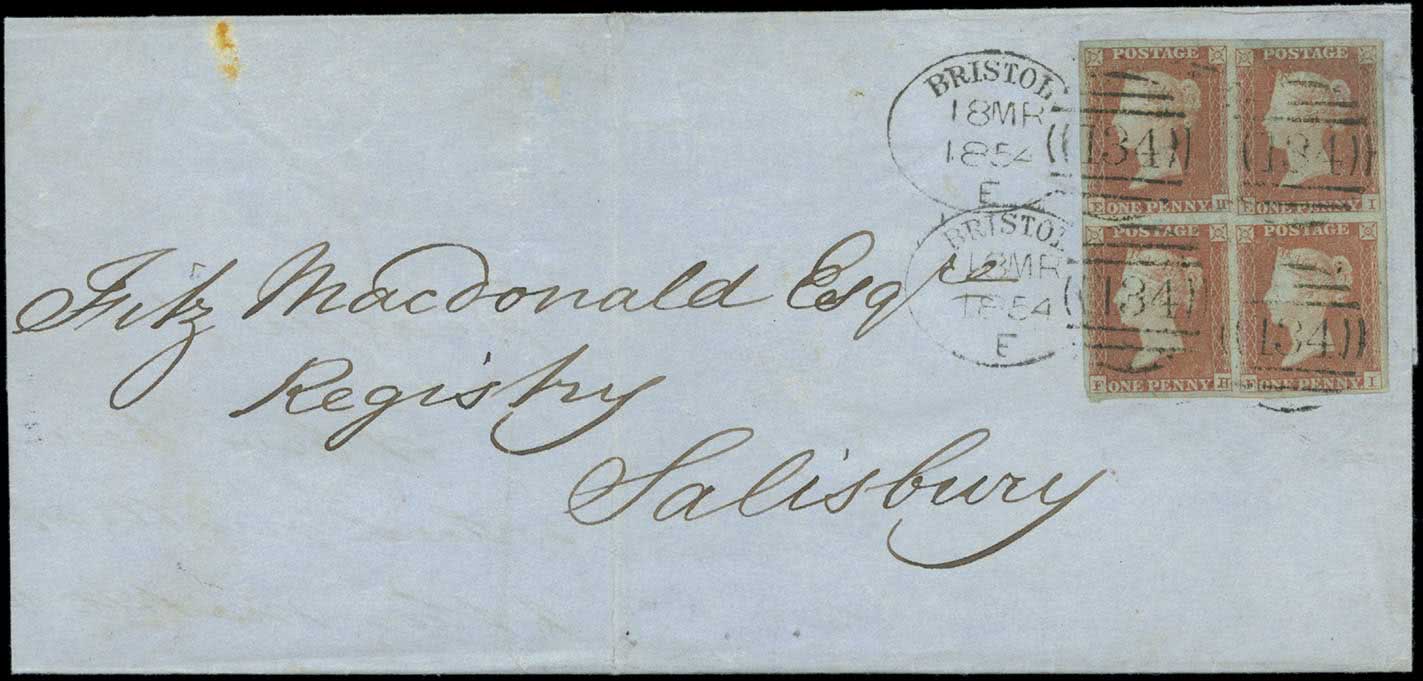 BRISTOL
18MR
1854
E
134
134
BRISTOL
18MR
1854
E
134
134
POSTAGE
POSTAGE
E ONE PENNY H
E ONE PENNY I
POSTAGE
POSTAGE
F ONE PENNY H
F ONE PENNY I
Fitz Macdonald Esqre
Registry
Salisbury